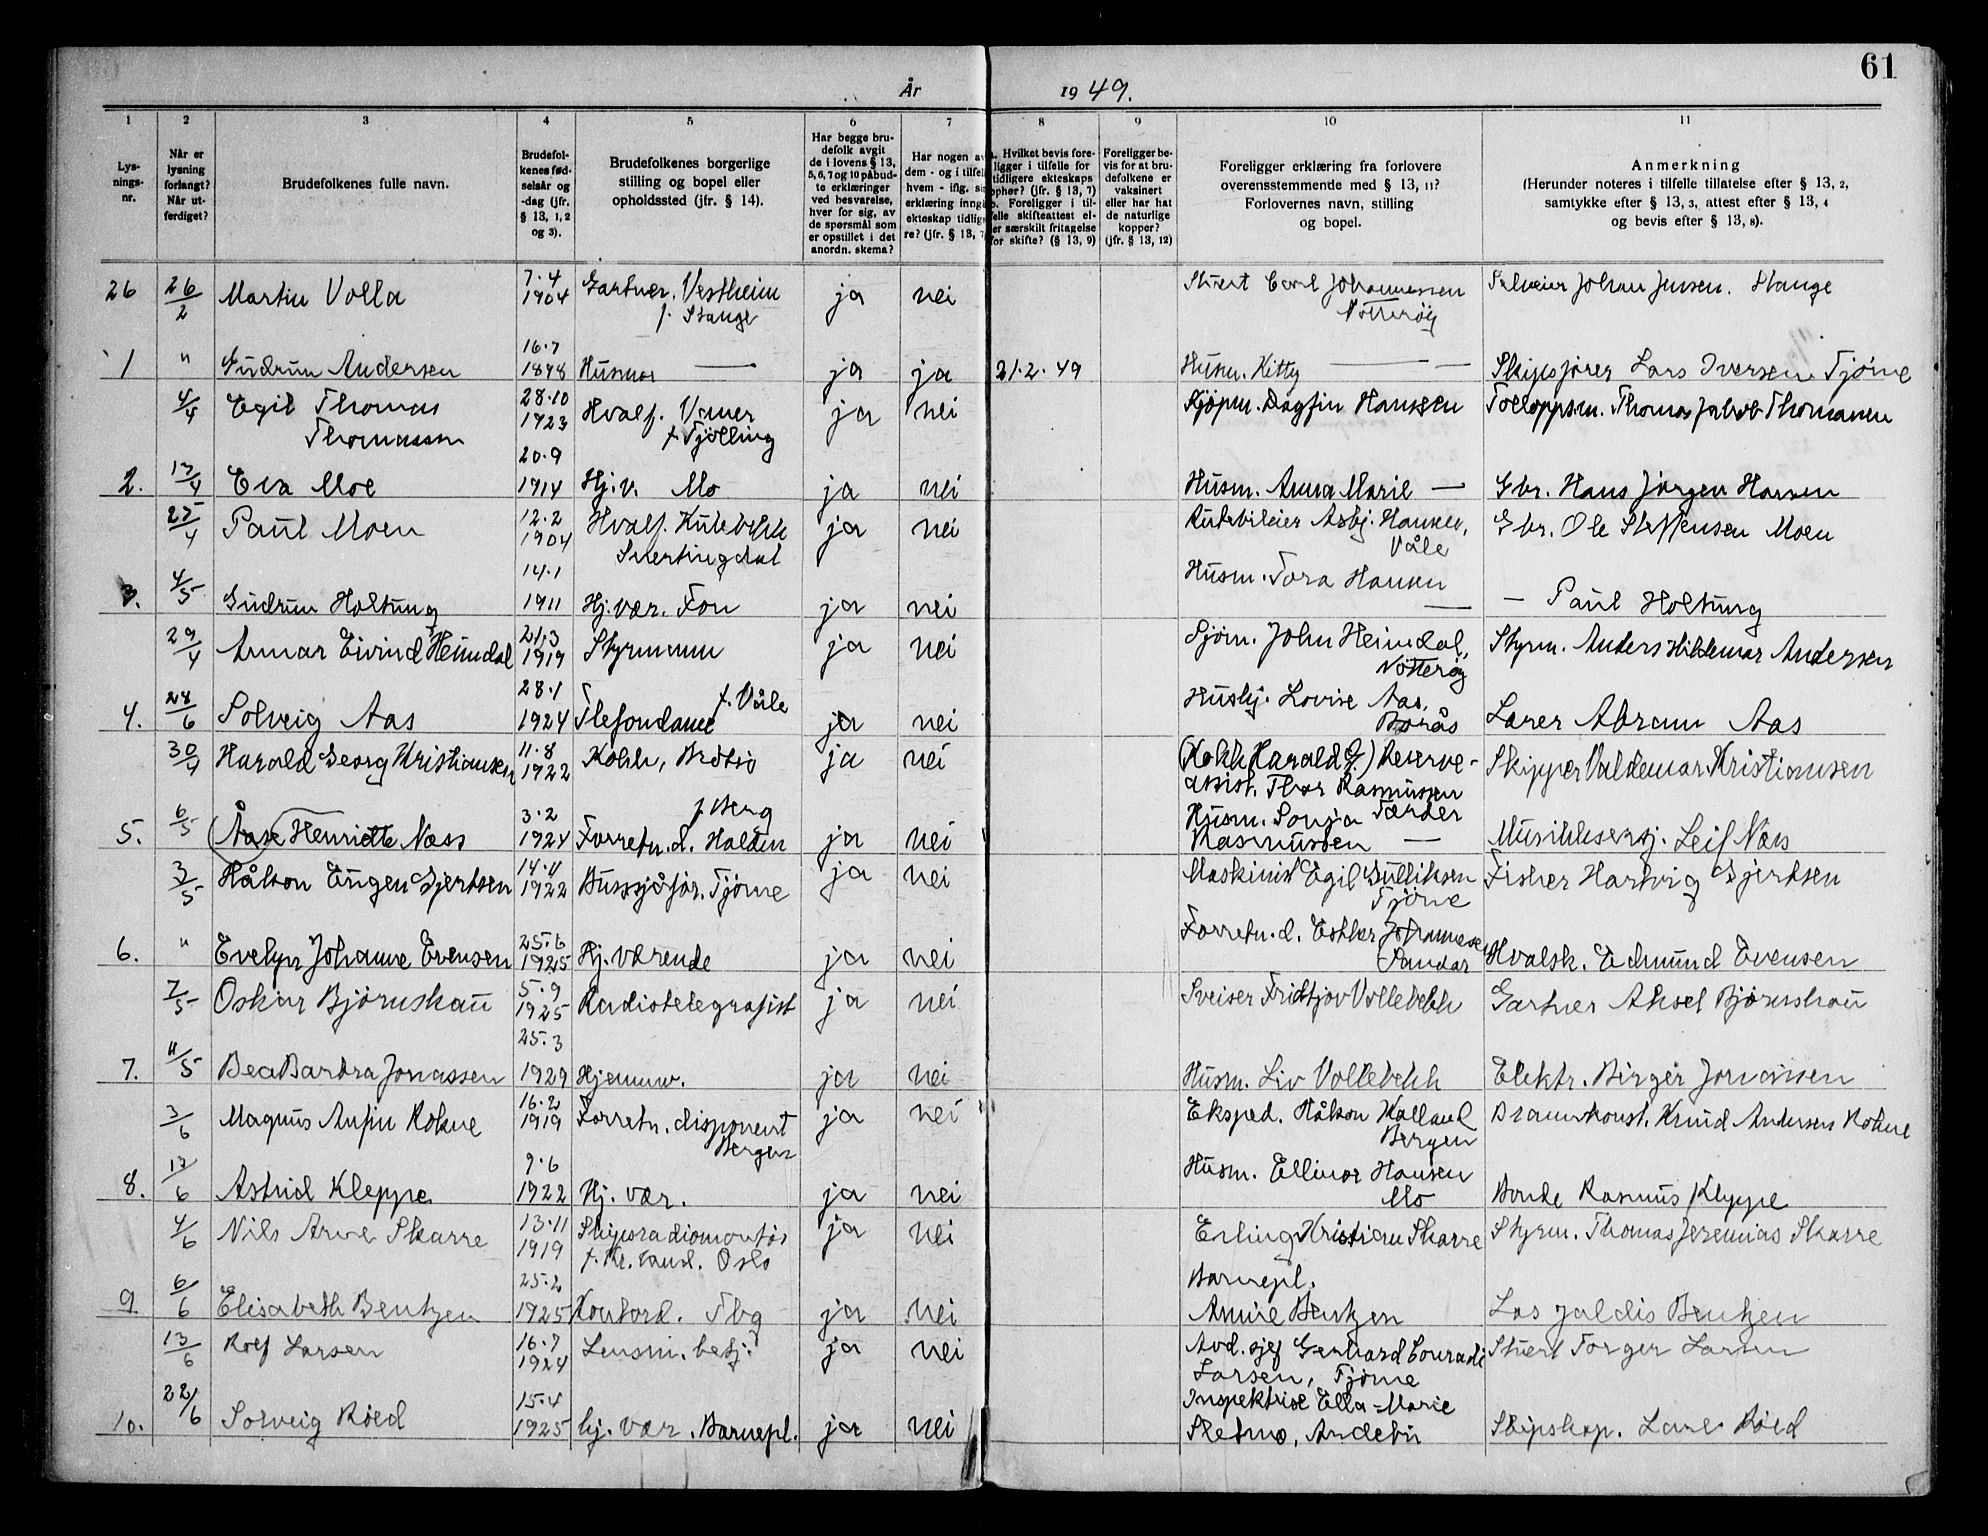 61
År 1949.
1 2 3 4 5 6 7 8 9 10 11
Lys-
nings-
nr.
Når er
lysning
forlangt?
Når ut-
ferdiget?
Brudefolkenes fulle navn.
Brudefol-
kenes fød-
selsår og
-dag (jfr.
§ 13, 1, 2
og 3).
Brudefolkenes borgerlige
stilling og bopel eller
opholdssted (jfr. § 14).
Har begge bru-
defolk avgit
de i lovens § 13,
5, 6, 7 og 10 påbud-
te erklæringer
ved besvarelse,
hver for sig, av
de spørsmål som
er opstillet i det
anordn. skema?
Har nogen av
dem - og i tilfelle
hvem - iflg. sin
erklæring inngått
ekteskap tidlige-
re? (jfr. § 13, 7)
a. Hvilket bevis fore-
ligger i tilfelle for
tidligere ekteskaps
ophør? (jfr. § 13, 7)
b. Foreligger i til-
felle skifteattest el-
ler særskilt fritagelse
for skifte? (§ 13, 9)
Foreligger be-
vis for at bru-
defolkene er
vaksinert
eller har hat
de naturlige
kopper?
(jfr. § 13, 12)
Foreligger erklæring fra forlovere
overensstemmende med § 13, 11?
Forlovernes navn, stilling
og bopel.
Anmerkning
(Herunder noteres i tilfelle tillatelse efter § 13, 2,
samtykke efter § 13, 3, attest efter § 13, 4
og bevis efter § 13, 8).
26 26/2 Martin Volla 7.4 1904 Gartner, Vestheim f. Stange ja nei Carl Johannessen Nøtterøy Johan Jensen. Stange
1 " Gudrun Andersen 16.7 1898 Husmor — ja ja 21.2.49 Husm. Kitty — Skipsfører Lars Iversen Tjøme
4/4 Egil Thomas Thomassen 28.10 1923 Hvalf. f. Tjølling ja nei Kjøpm. Dagfin Hanssen Tolloppsm. Thomas Jakob Thomassen
2. 13/4 Eva Moe 20.9 1914 Hj.v. Mo ja nei Husm. Anna Marie — Gbr. Hans Jørgen Hansen
25/4 Paul Moen 12.2 1904 Hvalf. Kulebekk Snertingdal ja nei Rutebileier Asbj. Hansen, Våle Gbr. Ole Steffensen Moen
3. 4/5 Gudrun Holtung 14.1 1911 Hj.vær. Fon ja nei Husm. Tora Hansen — — Paul Holtung
29/4 Eivind Heimdal 21.3 1919 Styrmann ja nei Sjøm. John Heimdal, Nøtterøy Styrm. Anders Hildemar Andersen
4. 28/6 Solveig Aas 28.1 1924 f. Våle Tlefondame ja nei Hushj. Lovise Aas, Borås Lærer Abram Aas
30/4 Harald Georg Kristiansen 11.8 1922 Kokk, Bråtsø ja nei (Kokk Harald G.) Reserve-
assist. Thor Rasmussen Færder Skipper Valdemar Kristiansen
5. 6/5 (Åase Henriette Næss 3.2 1924 f. Berg Forretn.d. Halden ja nei Husm. Sonja Rasmussen — Musikksersj. Leif Næss
3/5 Håkon Eugen Gjertsen 14.11 1922 Bussjåfør, Tjøme ja nei Maskinist Egil Gulliksen Tjøme Fisker Hartvig Gjertsen
6. " Evelyn Johanne Evensen 25.6 1925 Hj. værende ja nei Forretn.d. Esther Johannessen Sandar Hvalsk. Edmund Evensen
7/5 Oskar Bjørnskau 5.9 1925 Radiotelegrafist ja nei Sveiser Fridtjov Vollebekk Gartner Aksel Bjørnskau
7. 11/5 Bea Jonassen 25.3 1929 Hjemmev. ja nei Husm. Liv Vollebekk Elektr. Birger Jonassen
3/6 Magnus Anfin Rokne 16.2 1919 Forretn. disponent Bergen ja nei Eksped. Håkon Bergen Brannkonst. Knud Andersen Rokne
8. 13/6 Astrid Kleppe 9.6 1922 Hj. vær. ja nei Husm. Ellinor Hansen Mo Bonde Rasmus Kleppe
4/6 Nils Arne Skarre 13.11 1919 Skipsradiomontør f. Kr.sand. Oslo ja nei Erling Kristian Skarre Styrm. Thomas Jeremias Skarre
9. 6/6 Elisabeth Bentzen 25.2 1925 Kontord. Tbg ja nei Barnepl. Annie Bentzen Bentzen
13/6 Rolf Larsen 16.7 1924 Lensm. betj. ja nei Avd. sjef Gerhard Conradi Larsen, Tjøme Torger Larsen
10. 22/6 Solveig Røed 15.4 1925 hj. vær. Barnepl. ja nei Inspektrise Ella-Marie Sletmo, Andebu Skipskap. Røed